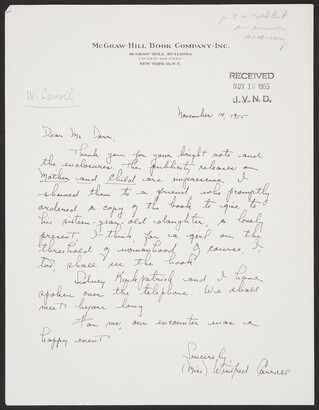 put on mail list
no answer
necessary
McGraw-Hill Book Company·Inc.
McGraw-Hill Building
330 West 42nd Street
New York 36, N.Y.
RECEIVED
NOV 18 1955
J.V.N.D.
W. Carroll
November 14, 1955
Dear Mr. Darr,
Thank you for your bright note and
the enclosures. The publicity releases on
Mother and Child are impressive. I
showed them to a friend who promptly
ordered a copy of the book to give to
his sixteen-year-old daughter. A lovely
present, I think, for a girl on the
threshold of womanhood. Of course, I,
too, shall see the book.
Sidney Kirkpatrick and I have
spoken over the telephone. We shall
meet before long.
For me, our encounter was a
happy event.
Sincerely,
(Miss) Winifred Carroll